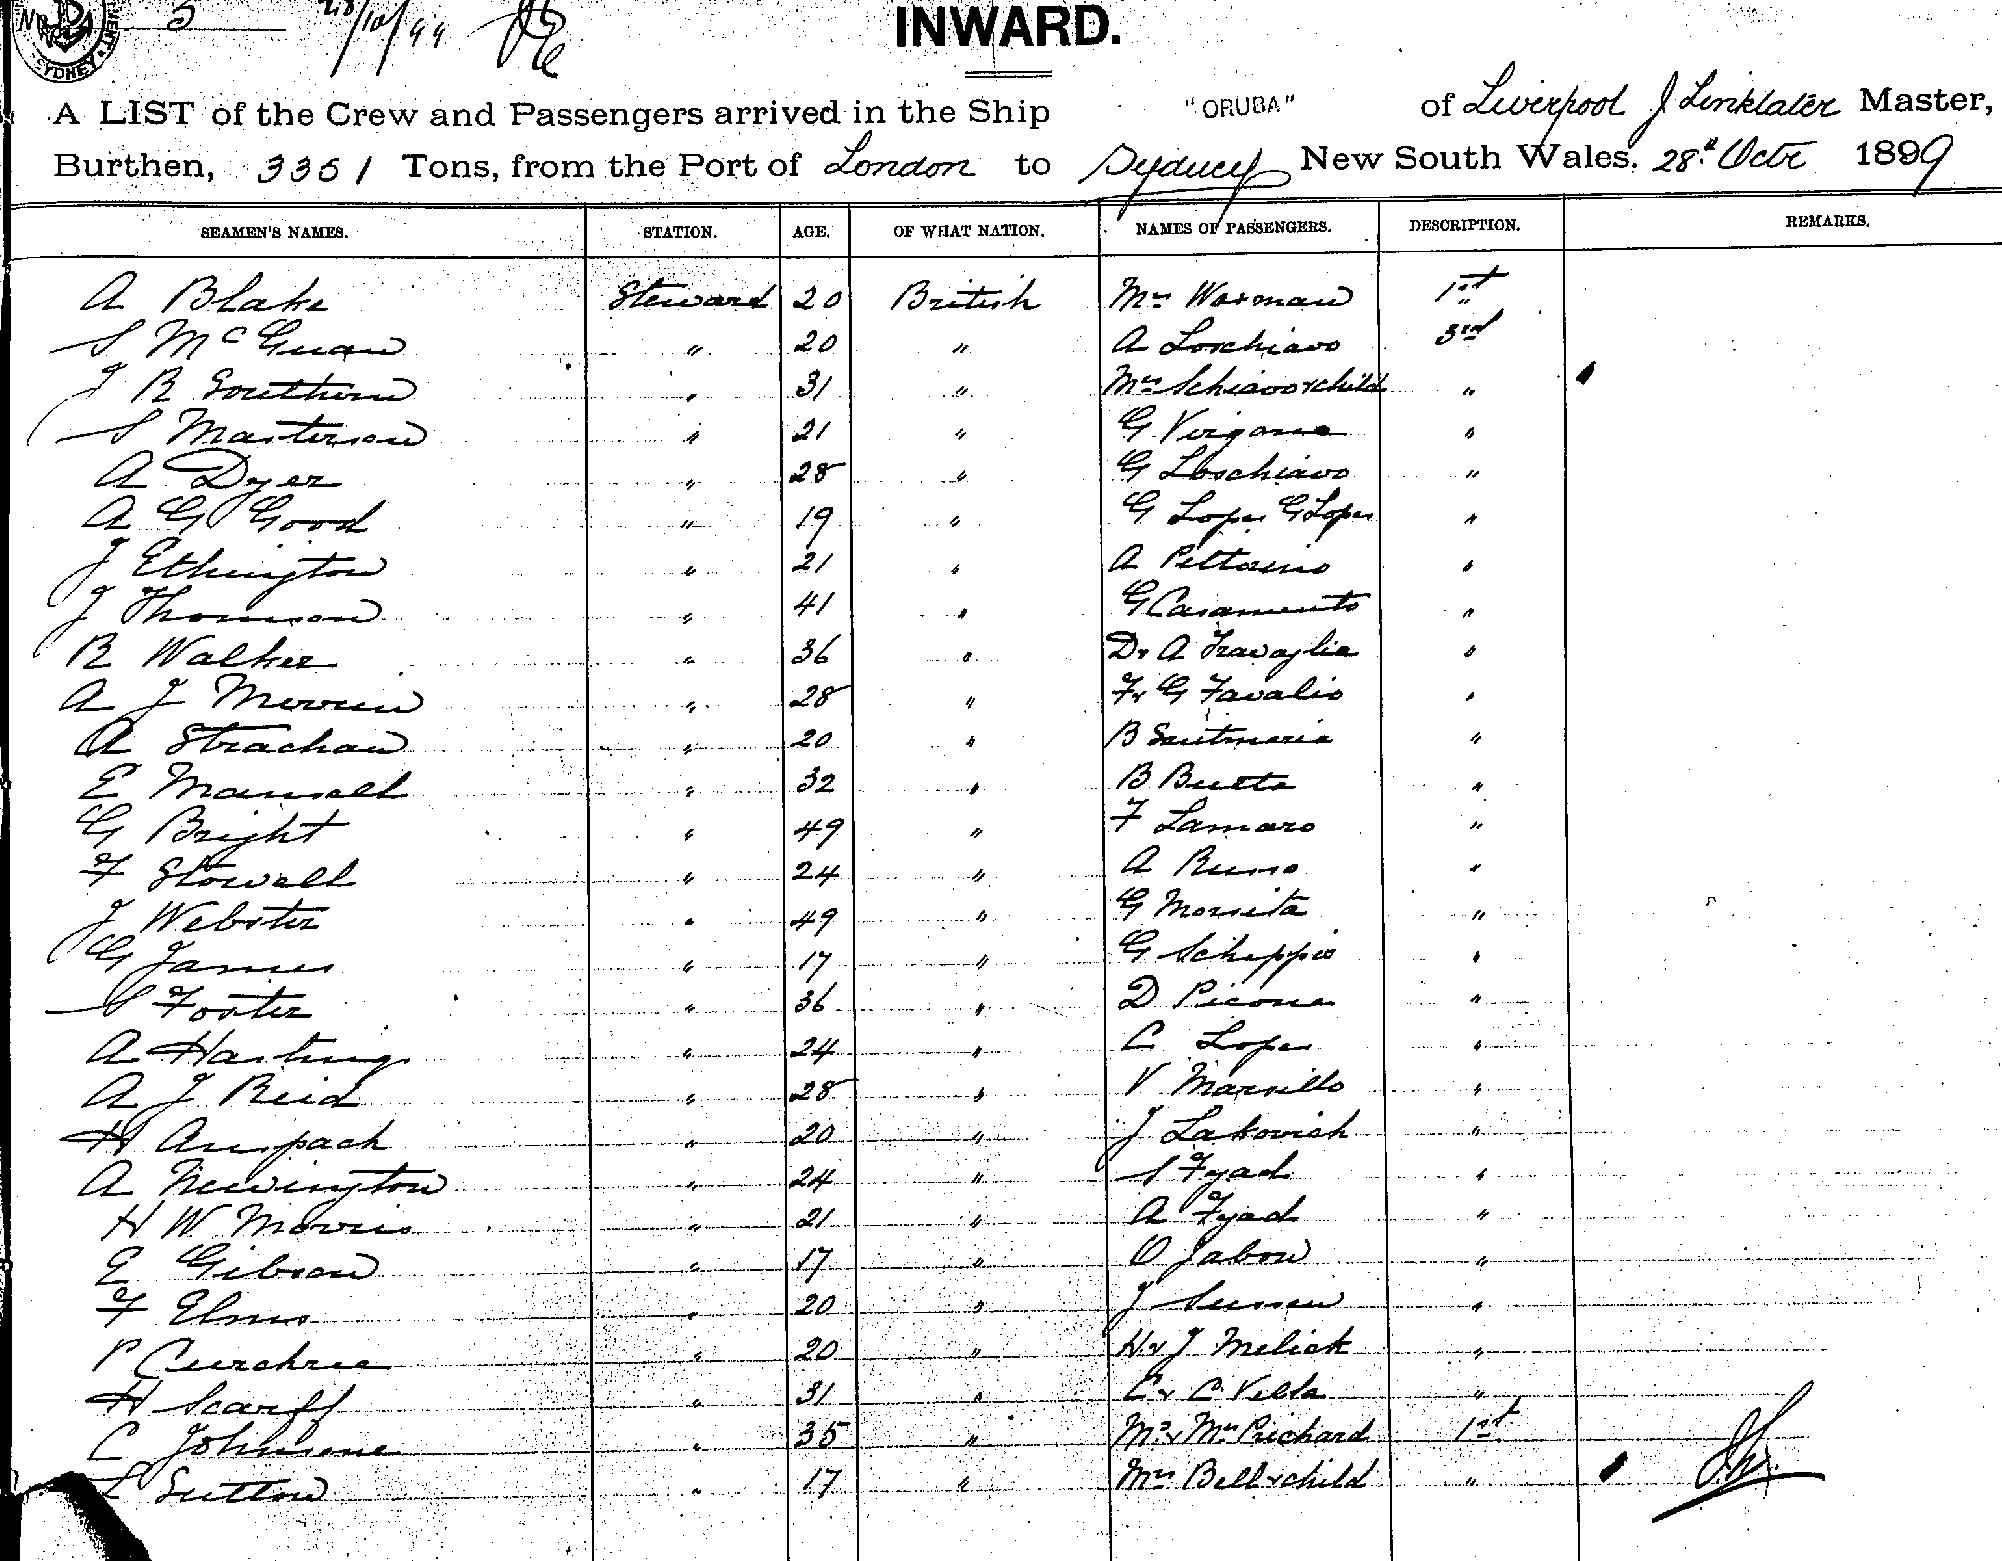 5 28/10/99
INWARD.
SYDNEY
A LIST of the Crew and Passengers arrived in the Ship "ORUBA" of Liverpool J Linklater Master,
Burthen, 3351 Tons, from the Port of London to Sydney New South Wales. 28th Octr 1899
SEAMEN'S NAMES. STATION. AGE. OF WHAT NATION. NAMES OF PASSENGERS. DESCRIPTION. REMARKS.
A Blake Steward 20 British Mr Waxman 1st
S McGuan " 20 " A Loschiavo 3rd
J R Southern " 31 " Mrs Schiavo & child "
S Masterson " 21 " G Virgona "
A Dyer " 28 " G Loschiavo "
A G Good " 19 " G Lopes G Lopes "
J Ethington " 21 " A Pittorino "
J Thomson " 41 " G Casamento "
R Walker " 36 " D & A Travaglia "
A J Merrin " 28 " F & G Favalio "
A Strachan " 20 " B Santmaria "
E Mansell " 32 " B Butta "
G Bright " 49 " F Lamaro "
F Stowell " 24 " A Russo "
J Webster " 49 " G "
G James " 17 " G Scheppis "
S Foster " 36 " D Picone "
A Hastings " 24 " C Lopes "
A J Reid " 28 " V Marsillo "
H Anspach " 20 " J Lakovich "
A Newington " 24 " S Fyad "
H W Morris " 21 " A Fyad "
E Gibson " 17 " O Jabour "
F Elms " 20 " J "
P " 20 " H & J Melick "
H Scarff " 31 " C & C Villa "
C Johnsone " 35 " Mr & Mrs Prichard 1st
S Sutton " 17 " Mrs Bell & child "